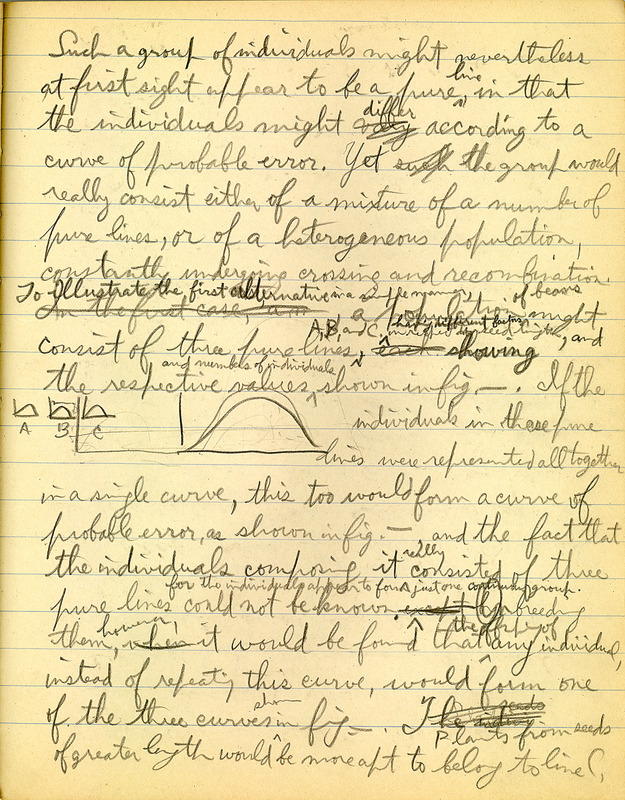 Such a group of individuals might nevertheless
at first sight appear to be a pure line, in that
the individuals might differ according to a
curve of probable error. Yet the group would
really consist either of a mixture of a number of
pure lines, or of a heterogeneous population,
constantly undergoing crossing and recombination.
To illustrate the first alternative in a simple manner, of beans
In the first case, a population might
A, B, and C, that differ in factors for seed length, and
consist of three pure lines, each showing
and numbers of individuals
the respective values shown in fig. —. If the
individuals in these pure
A B C
lines were represented all together
in a single curve, this too would form a curve of
probable error, as shown in fig. —, and the fact that
the individuals composing it really consisted of three
for the individuals appear to form just one continuous group.
pure lines could not be known except By breeding
them, however, when it would be found that the offspring of any individual,
instead of repeating this curve, would form one
of the three curves shown in fig —. The
Plants from seeds
of greater length would be more apt to belong to line C,